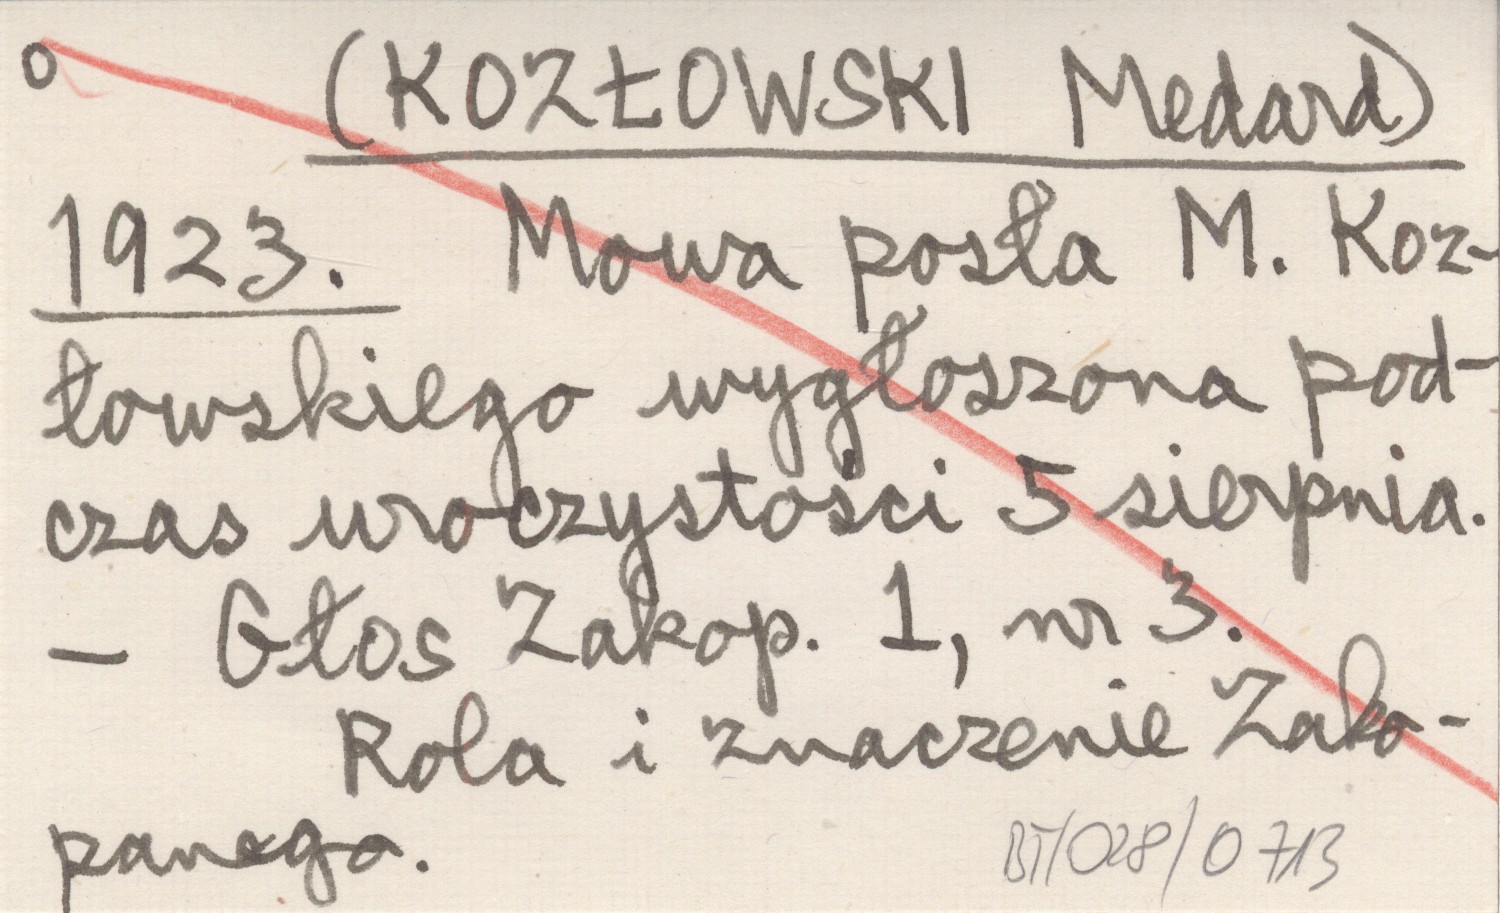 o (KOZŁOWSKI Medard)
1923. Mowa posła M. Koz-
łowskiego wygłoszona pod-
czas uroczystości 5 sierpnia.
- Głos Zakop. 1, nr 3.
Rola i znaczenie Zako-
panego.
BT/028/0713